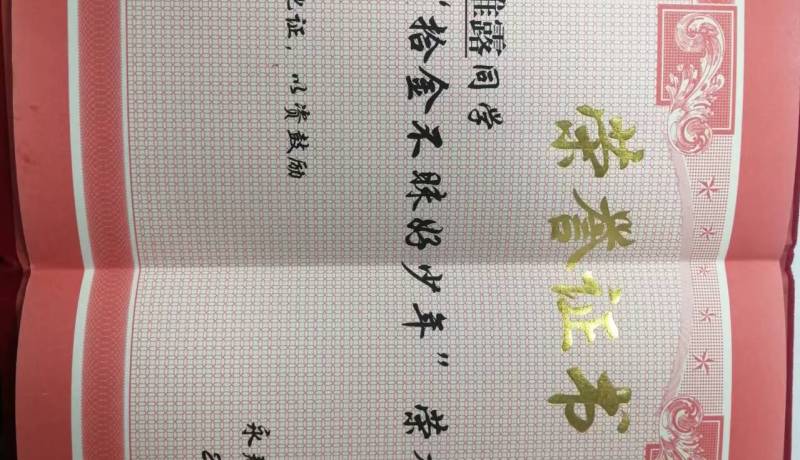 荣誉证书
露同学
“拾金不昧好少年”荣
此证，以资鼓励
永